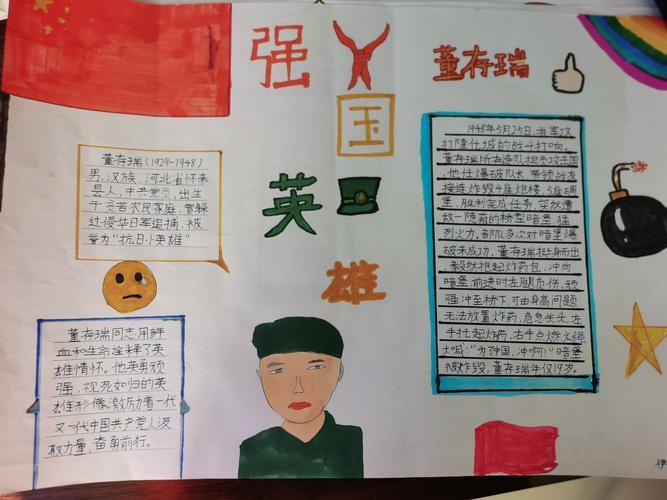 强
人
国
英
雄
董存瑞
董存瑞(1929-1948)
男,汉族,河北省怀来
县人,中共党员,出生
于贫苦农民家庭,曾躲
过侵华日军追捕,被
誉为“抗日小英雄”
董存瑞同志用鲜
血和生命诠释了英
雄情怀。他英勇顽
强,视死如归的英
雄形像激励着一代
又一代中国共产党人汲
取力量,奋勇前行。
1948年5月25日,我军攻
打隆化城的战斗打响。
董存瑞所在连队担负攻击国
他任爆破队长,带领战友
接连炸毁4座炮楼,5座碉
堡,胜利完成任务,突然遭
敌一隐蔽的桥型暗堡猛
烈火力。部队多次对暗堡爆
破未成功,董存瑞挺身而出
毅然抱起炸药包,冲向
暗堡,前进时左腿负伤,顽
强冲至桥下,可由身高问题
无法放置炸药,危急关头,左
手托起炸药,右手点燃火线
大喊:“为中国,冲啊!”暗堡
被炸毁,董存瑞年仅19岁。
伊